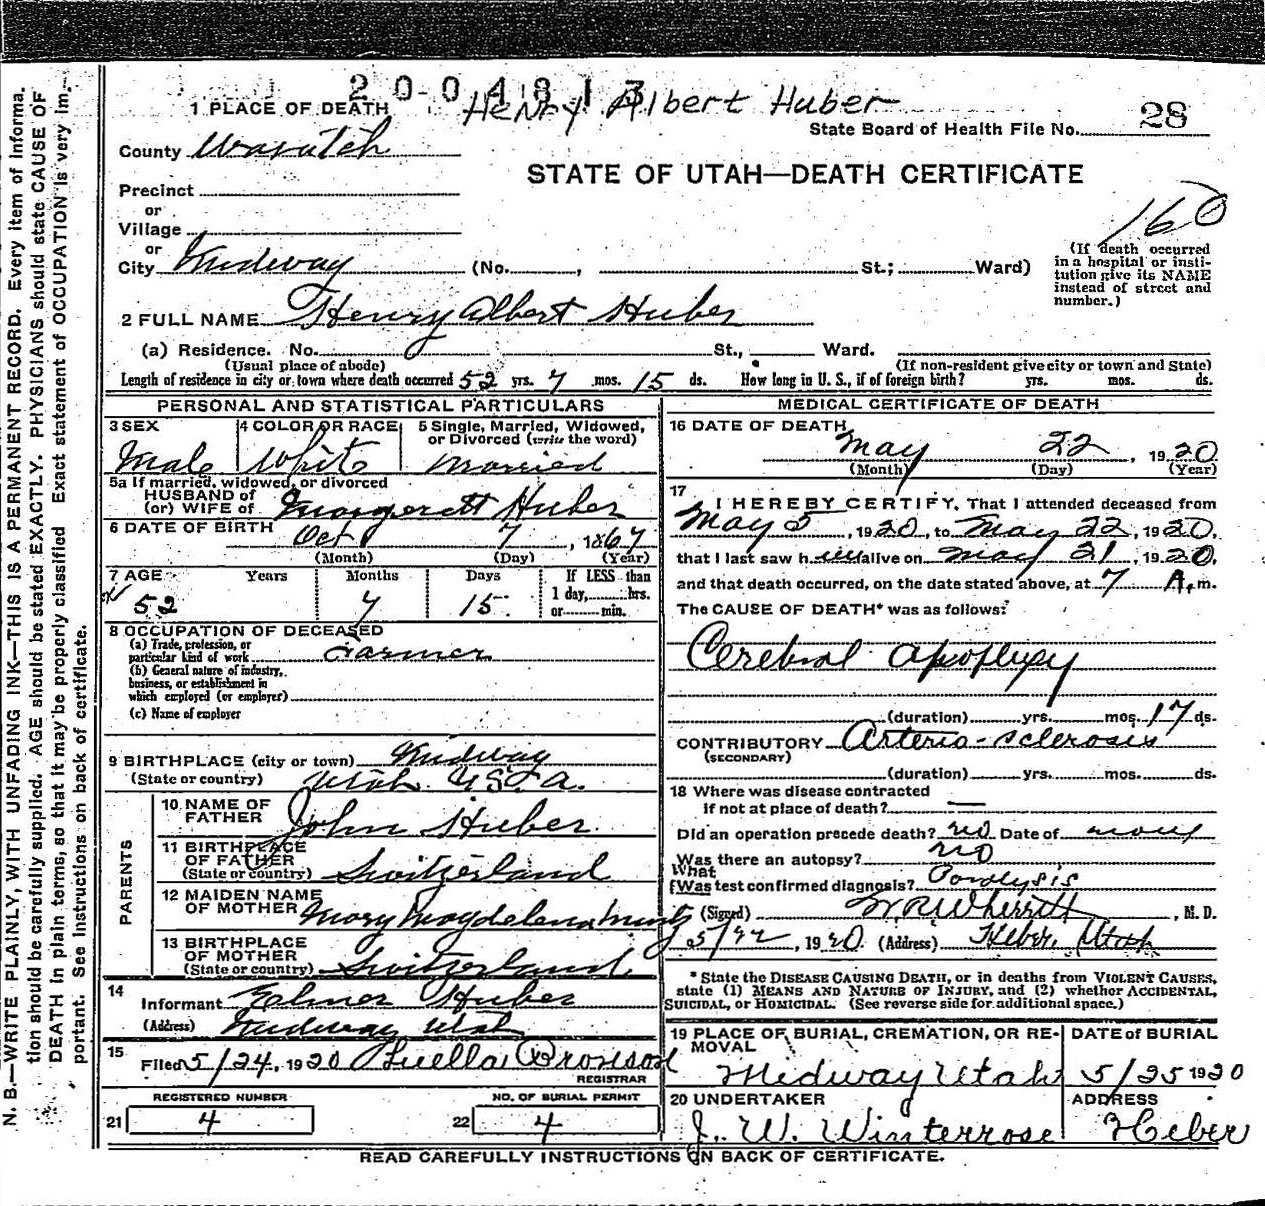 2004813
Henry Albert Huber
1 PLACE OF DEATH
State Board of Health File No. 28
County Wasatch
STATE OF UTAH—DEATH CERTIFICATE
Precinct
or
Village
160
or
City Midway (No. , St.; Ward)
(If death occurred
in a hospital or insti-
tution give its NAME
instead of street and
number.)
2 FULL NAME Henry Albert Huber
(a) Residence. No. St., Ward.
(Usual place of abode) (If non-resident give city or town and State)
Length of residence in city or town where death occurred 52 yrs. 7 mos. 15 ds. How long in U. S., if of foreign birth? yrs. mos. ds.
PERSONAL AND STATISTICAL PARTICULARS
3 SEX Male
4 COLOR OR RACE White
5 Single, Married, Widowed,
or Divorced (write the word)
Married
5a If married, widowed, or divorced
HUSBAND of
(or) WIFE of Margerett Huber
6 DATE OF BIRTH Oct 7, 1867
(Month) (Day) (Year)
7 AGE Years Months Days If LESS than
1 day, hrs.
or min.
52 7 15
8 OCCUPATION OF DECEASED
(a) Trade, profession, or
particular kind of work Farmer
(b) General nature of industry,
business, or establishment in
which employed (or employer)
(c) Name of employer
9 BIRTHPLACE (city or town) Midway
(State or country) Utah U.S.A.
PARENTS
10 NAME OF
FATHER John Huber
11 BIRTHPLACE
OF FATHER
(State or country) Switzerland
12 MAIDEN NAME
OF MOTHER Mary Magdelena
13 BIRTHPLACE
OF MOTHER
(State or country) Switzerland
14
Informant Elmer Huber
(Address) Midway Utah
15
Filed 5/24, 1920 Luella Bronson
REGISTRAR
REGISTERED NUMBER
21 4
NO. OF BURIAL PERMIT
22 4
MEDICAL CERTIFICATE OF DEATH
16 DATE OF DEATH
May 22, 1920
(Month) (Day) (Year)
17
I HEREBY CERTIFY, That I attended deceased from
May 5, 1920, to May 22, 1920,
that I last saw him alive on May 21, 1920,
and that death occurred, on the date stated above, at 7 A.m.
The CAUSE OF DEATH* was as follows:
Cerebral apoplexy
(duration) yrs. mos. 17 ds.
CONTRIBUTORY Arterio-sclerosis
(SECONDARY)
(duration) yrs. mos. ds.
18 Where was disease contracted
if not at place of death? —
Did an operation precede death? no Date of none
Was there an autopsy? no
What
(Was test confirmed diagnosis? Paralysis
(Signed) W.R. Wherritt, M. D.
5/22, 1920 (Address) Heber, Utah
* State the DISEASE CAUSING DEATH, or in deaths from VIOLENT CAUSES,
state (1) MEANS AND NATURE OF INJURY, and (2) whether ACCIDENTAL,
SUICIDAL, or HOMICIDAL. (See reverse side for additional space.)
19 PLACE OF BURIAL, CREMATION, OR RE-
MOVAL
Midway Utah
DATE of BURIAL
5/25 1920
20 UNDERTAKER
J. W. Winterrose
ADDRESS
Heber
READ CAREFULLY INSTRUCTIONS ON BACK OF CERTIFICATE.
N. B.—WRITE PLAINLY, WITH UNFADING INK—THIS IS A PERMANENT RECORD. Every item of informa-
tion should be carefully supplied. AGE should be stated EXACTLY. PHYSICIANS should state CAUSE OF
DEATH in plain terms, so that it may be properly classified. Exact statement of OCCUPATION is very im-
portant. See instructions on back of certificate.